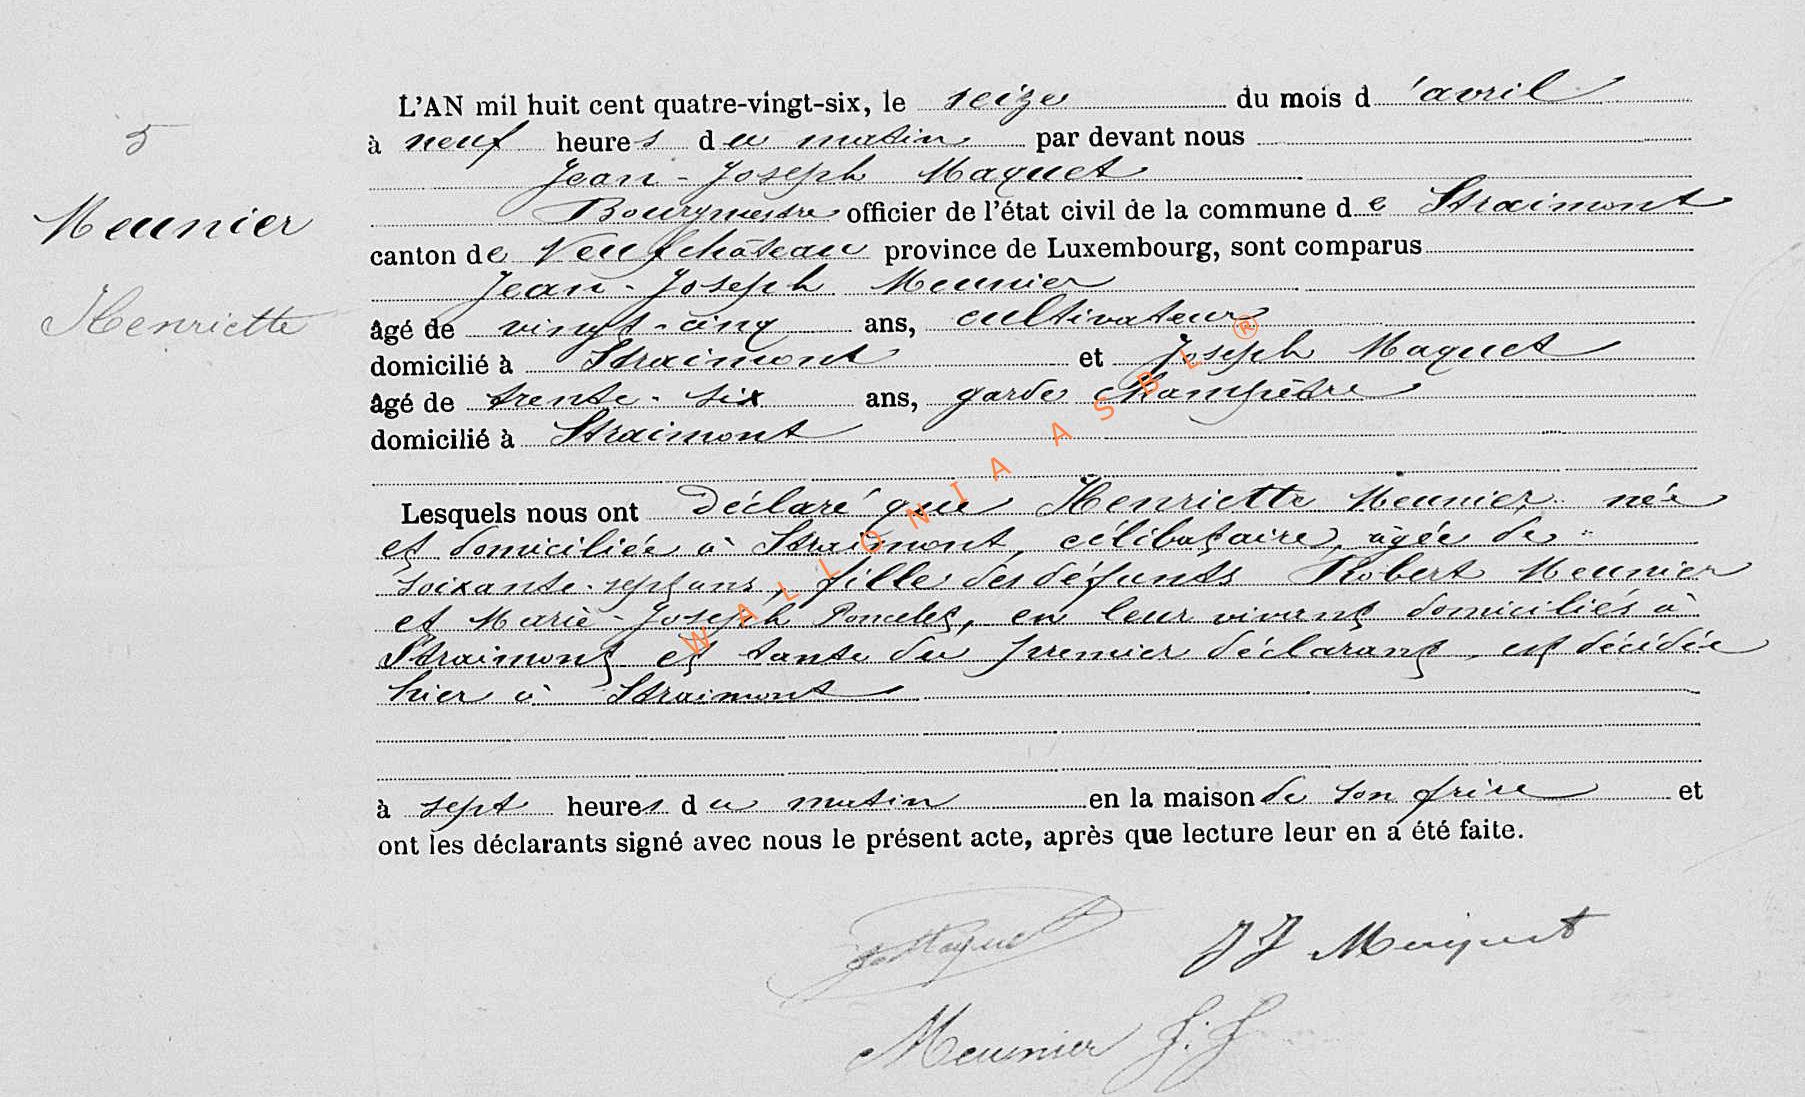 5
Meunier
Henriette
L'AN mil huit cent quatre-vingt-six, le seize du mois d'avril
à neuf heures du matin par devant nous
Jean-Joseph Maquet
Bourgmestre officier de l'état civil de la commune de Straimont
canton de Neufchâteau province de Luxembourg, sont comparus
Jean-Joseph Meunier
âgé de vingt-cinq ans, cultivateur
domicilié à Straimont et Joseph Maquet
âgé de trente-six ans, garde champêtre
domicilié à Straimont
Lesquels nous ont déclaré que Henriette Meunier, née
et domiciliée à Straimont, célibataire, âgée de
soixante-sept ans, fille des défunts Robert Meunier
et Marie-Joseph Poncelet, en leur vivant domiciliés à
Straimont et tante du premier déclarant, est décédée
hier à Straimont
à sept heures du matin en la maison de son frère et
ont les déclarants signé avec nous le présent acte, après que lecture leur en a été faite.
Jos Maquet JJ Maquet
Meunier J. J
WALLONIA ASBL ®